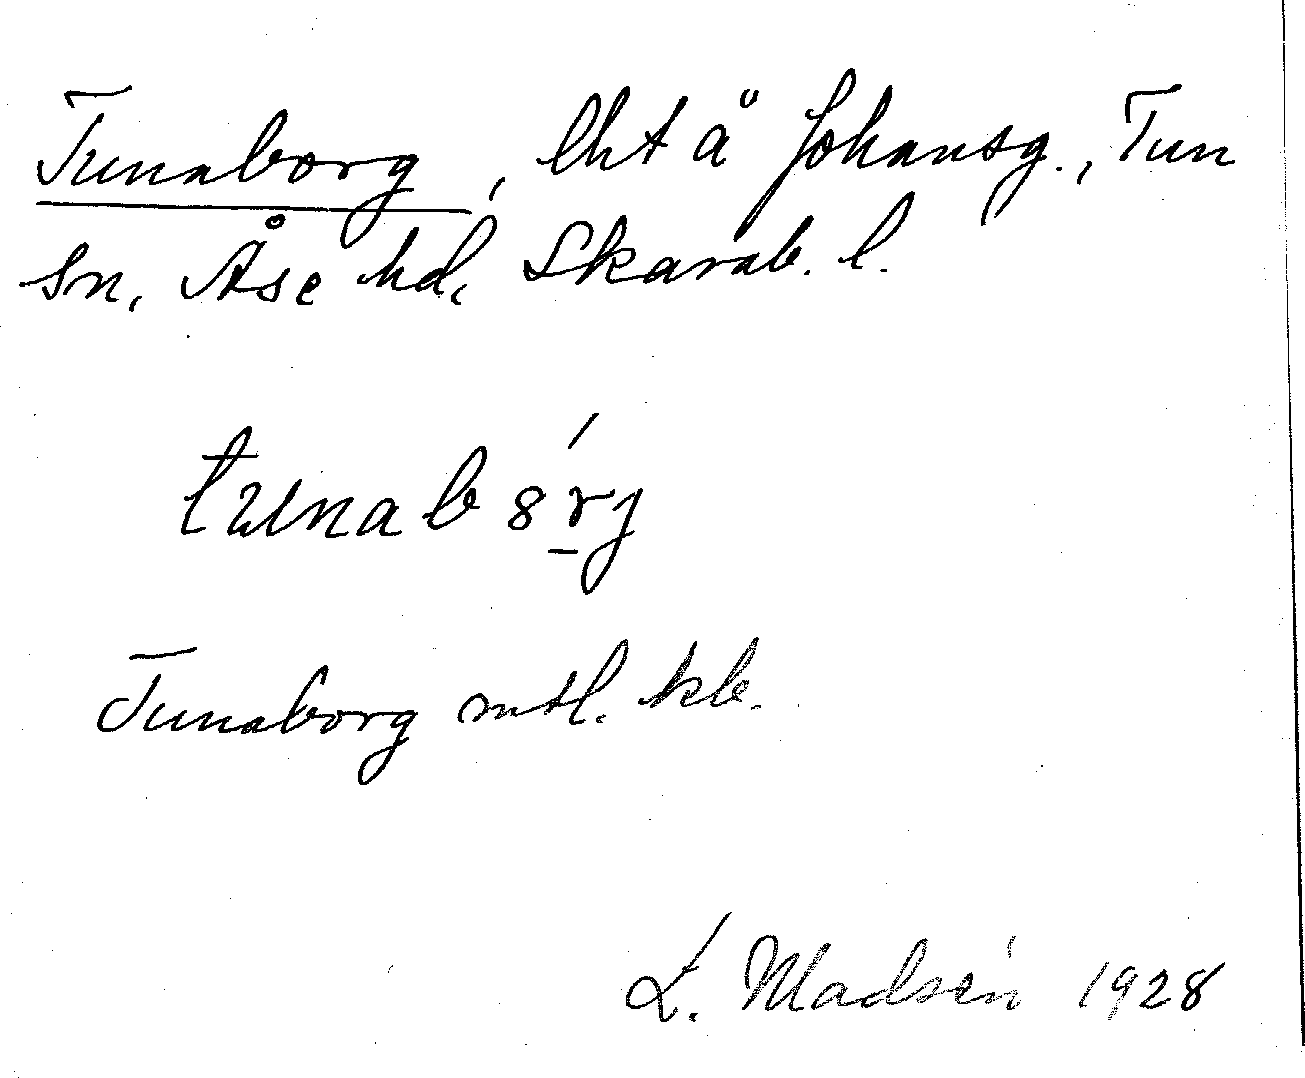 Tunaborg, lht å Johansg., Tun
sn, Åse hd, Skarab. l.
tunab8́rj
Tunaborg mtl. kb.
L. Madsén 1928